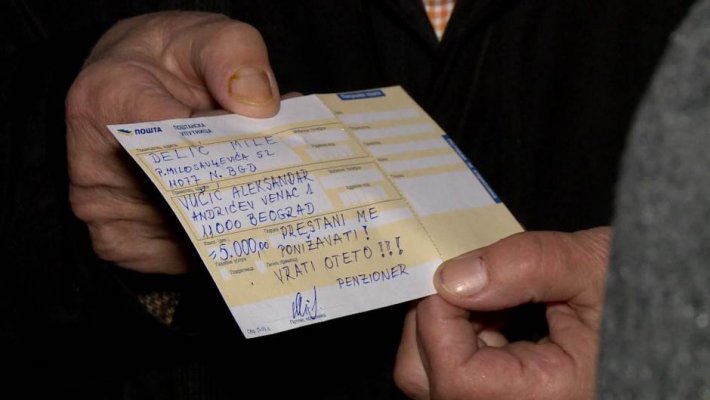 ПОШТА ПОШТАНСКА
УПУТНИЦА
DELIĆ MILE
P. MILOSAVLJEVIĆA 52
11077 N. BGD
VUČIĆ ALEKSANDAR
ANDRIĆEV VENAC 1
11000 BEOGRAD
=5.000,00
PRESTANI ME
PONIŽAVATI!
VRATI OTETO!!!
PENZIONER